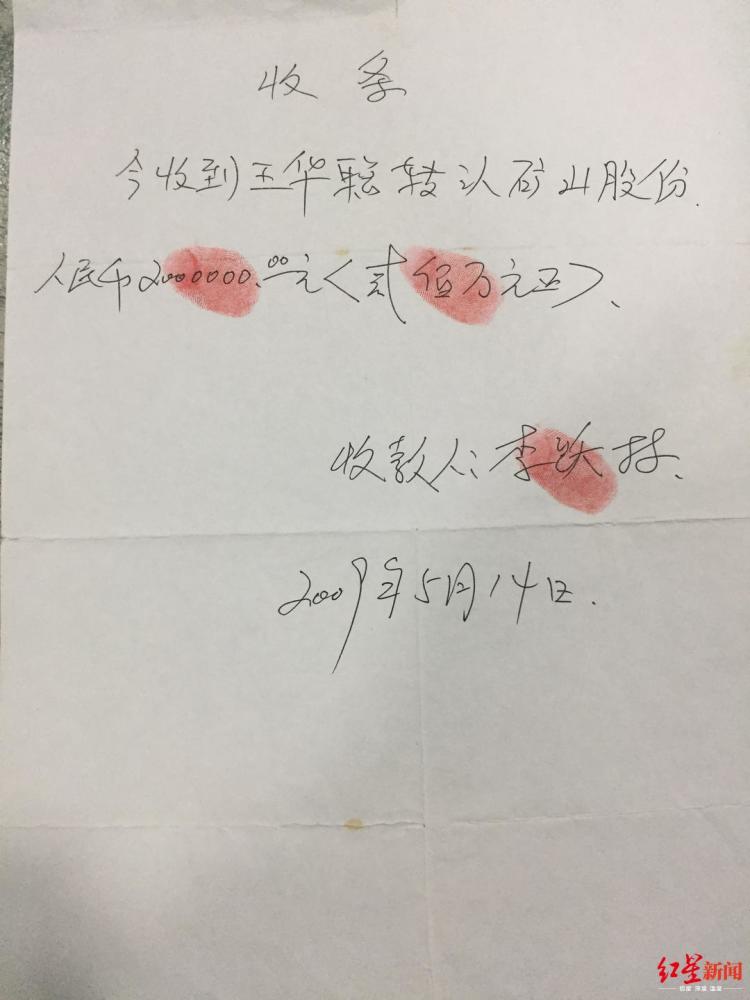 收条
今收到王华聪转认矿山股份.
人民币2000000.00元<贰佰万元正>.
收款人:李跃林.
2009年5月14日.
红星新闻